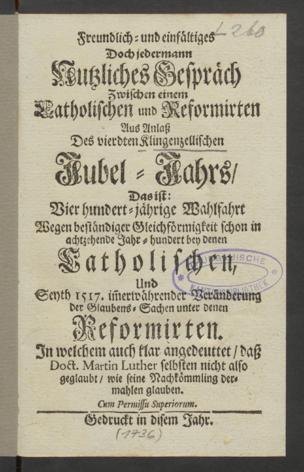 L 260
Freundlich- und einfältiges
Doch jedermann
Nutzliches Gespräch
Zwischen einem
Catholischen und Reformirten
Aus Anlaß
Des vierdten Klingenzellischen
Jubel-Jahrs/
Das ist:
Vier hundert-jährige Wahlfahrt
Wegen beständiger Gleichförmigkeit schon in
achtzehende Jahr-hundert bey denen
Catholischen,
Und
Seyth 1517. im̃erwährender Veränderung
der Glaubens-Sachen unter denen
Reformirten.
In welchem auch klar angedeuttet/ daß
Doct. Martin Luther selbsten nicht also
geglaubt/ wie seine Nachkömmling der-
mahlen glauben.
Cum Permissu Superiorum.
Gedruckt in disem Jahr.
(1736)